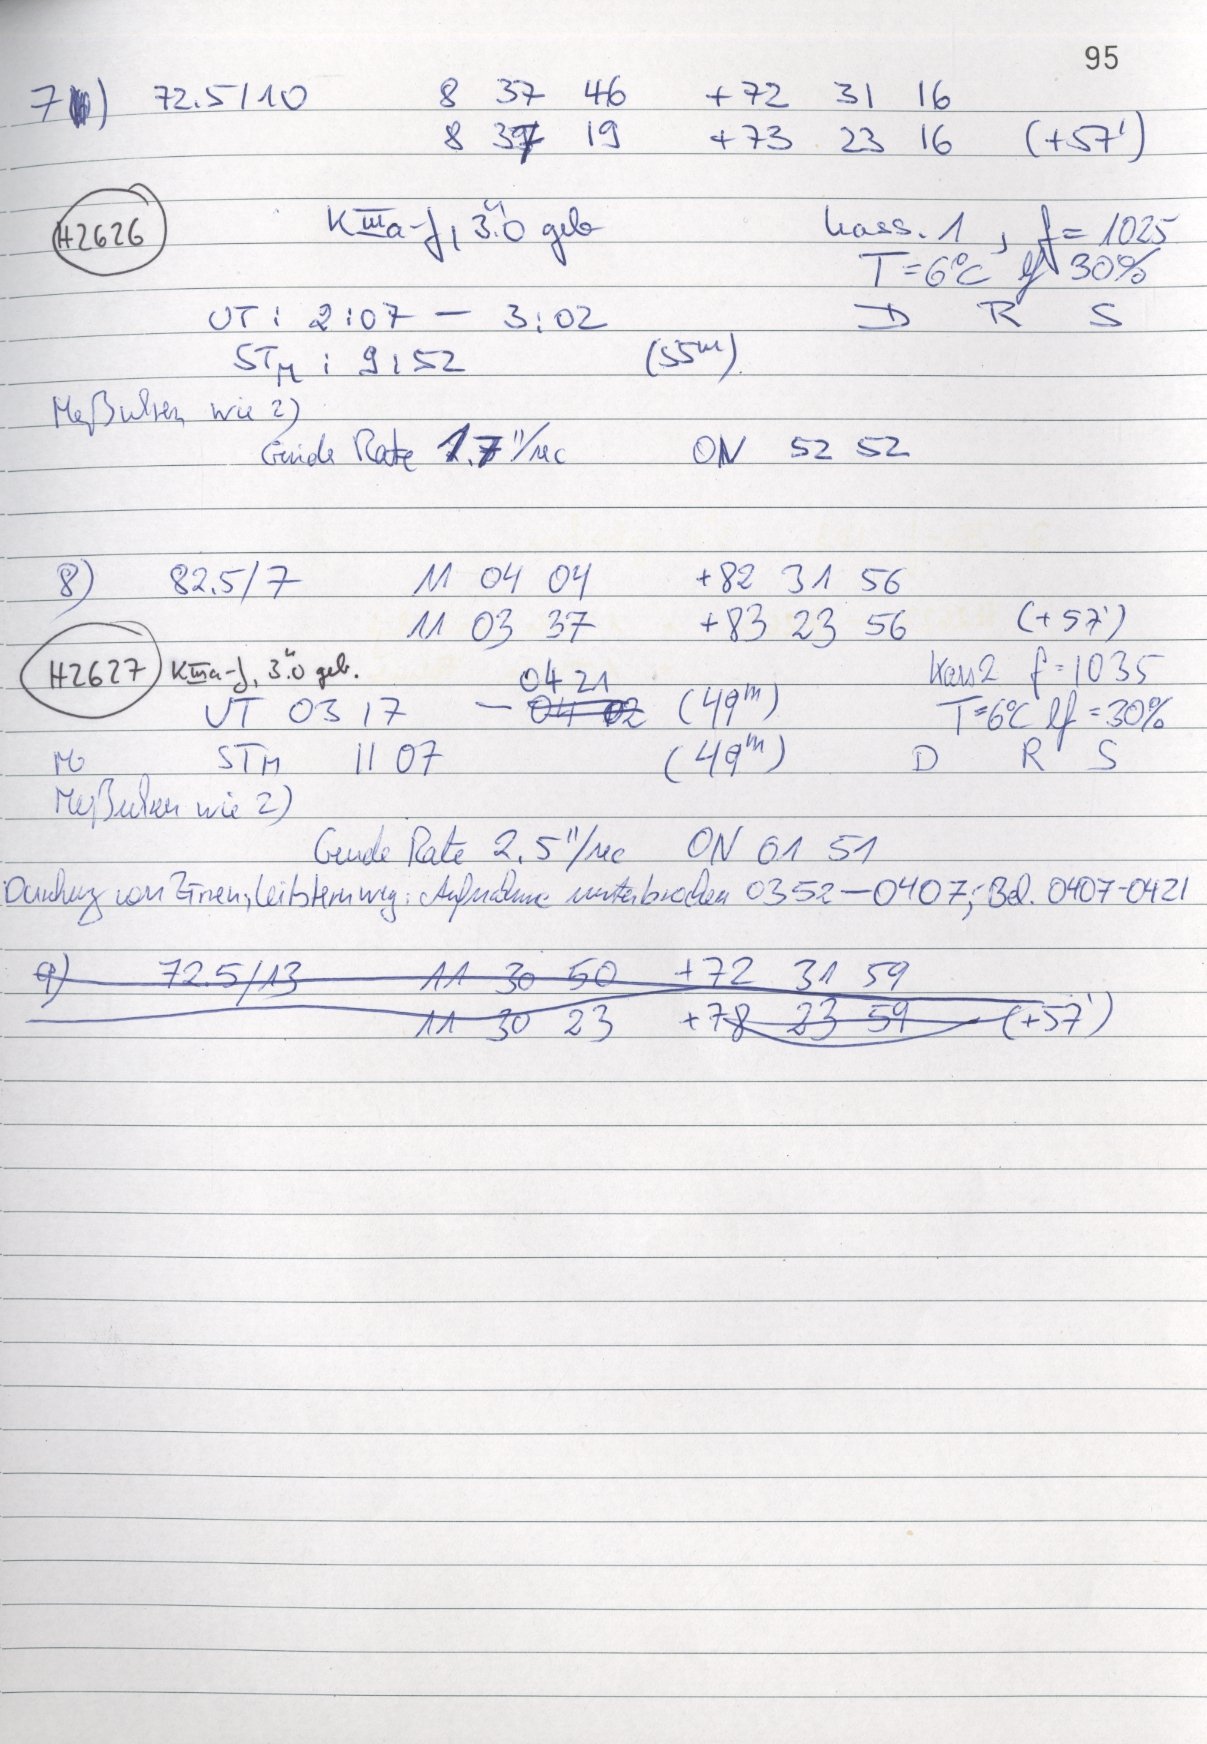 95
7) 72.5/10 8 37 46 +72 31 16
8 37 19 +73 23 16 (+57')
H2626 KIIIa-J, 3."0 geb Kass. 1, f = 1025
T=6°C lf 30%
UT: 2:07 — 3:02 D R S
STM: 9:52 (55m)
Meßuhren wie 2)
Guide Rate 1.7"/sec ON 52 52
8) 82.5/7 11 04 04 +82 31 56
11 03 37 +83 23 56 (+57')
H2627 KIIIa-J, 3."0 geb. Kass2 f=1035
04 21
UT 03 17 — 04 02 (49m) T=6°C lf=30%
STM 11 07 (49m) D R S
Meßuhren wie 2)
Guide Rate 2.5"/sec ON 01 51
Durchzug von Zirren, Leitstern weg: Aufnahme unterbrochen 0352—0407; Bel. 0407-0421
9) 72.5/13 11 30 50 +72 31 59
11 30 23 +78 23 59 (+57')